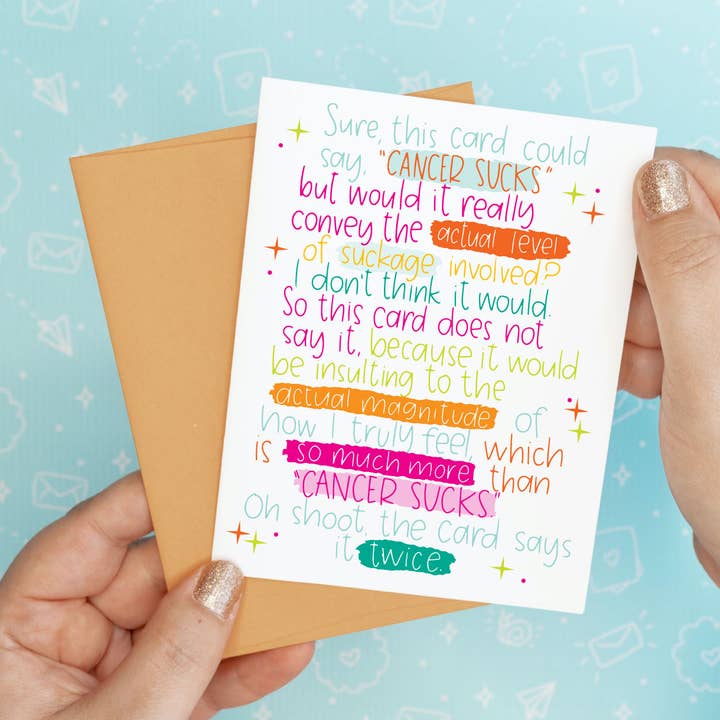 Sure, this card could
say, "CANCER SUCKS"
but would it really
convey the actual level
of suckage involved?
I don't think it would.
So this card does not
say it, because it would
be insulting to the
actual magnitude of
how I truly feel, which
is so much more than
"CANCER SUCKS."
Oh shoot, the card says
it twice.